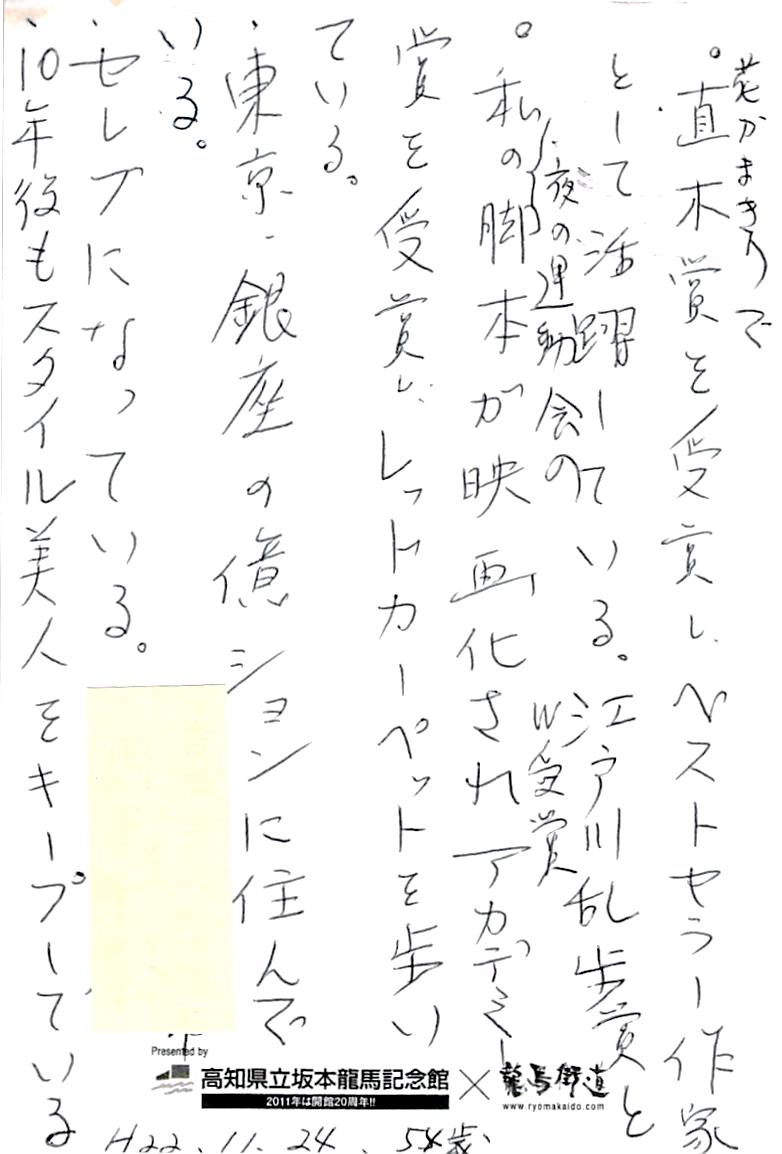 花かまきりで
。直木賞を受賞し、ベストセラー作家
として活躍している。江戸川乱歩賞と
W受賞
「夜の運動会」の
。私の脚本が映画化されアカデミー
賞を受賞し、レットカーペットを歩い
ている。
・東京・銀座の億ションに住んで
いる。
・セレブになっている。
・10年後もスタイル美人をキープしている
Presented by
高知県立坂本龍馬記念館×龍馬街道
2011年は開館20周年!!
www.ryomakaido.com
H22.11.24、54歳